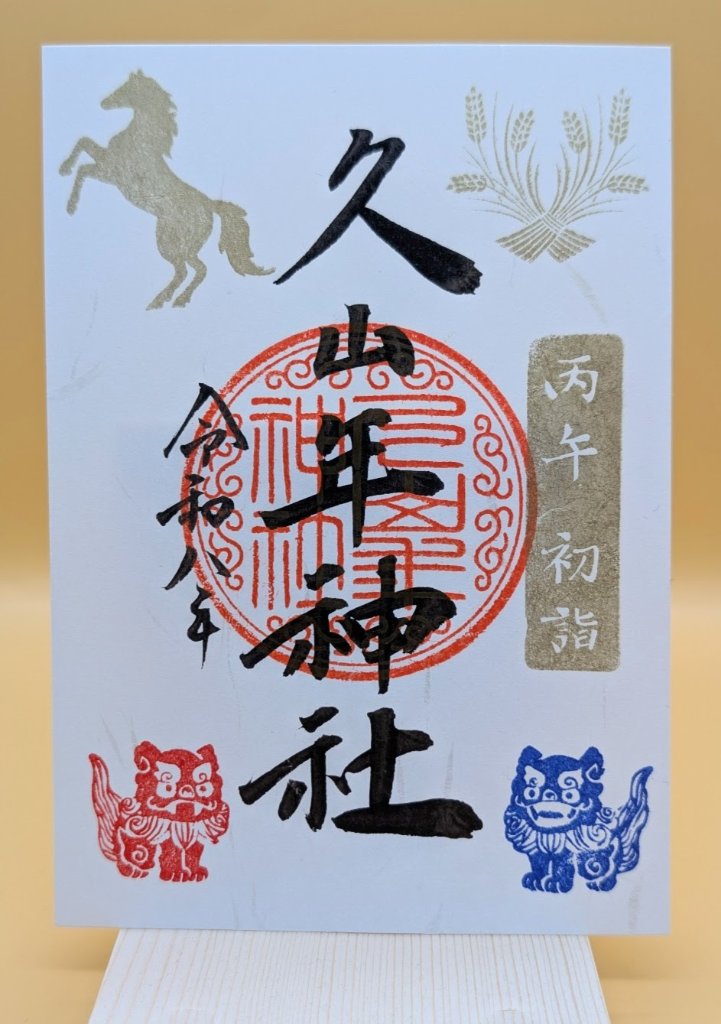 丙午 初詣
久山年神社
令和八年